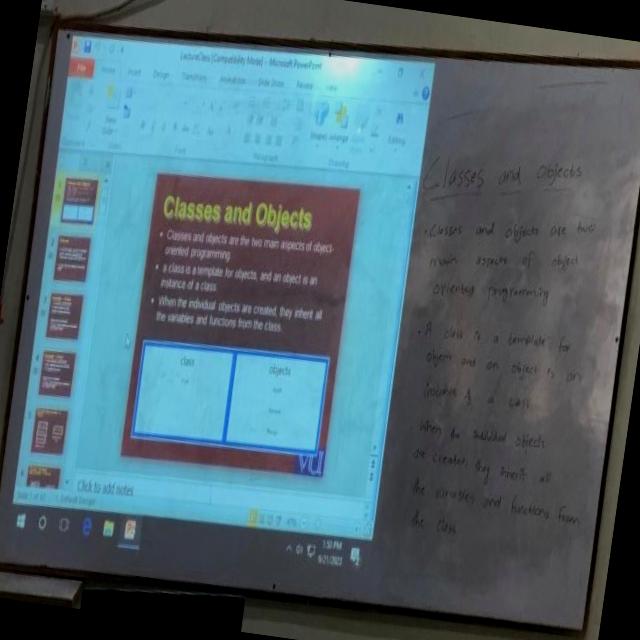 LectureClass [Compatibility Mode] - Microsoft PowerPoint
File
Home
Insert
Design
Transitions
Animations
Slide Show
Review
View
Font
Paragraph
Drawing
Editing
Shapes
Arrange
Classes and Objects
• Classes and objects are the two main aspects of object-
oriented programming.
• a class is a template for objects, and an object is an
instance of a class.
• When the individual objects are created, they inherit all
the variables and functions from the class.
class
objects
Fruit
Apple
Banana
Mango
vu
Click to add notes
1:50 PM
Classes and Objects
. Classes and objects are two
main aspects of object
oriented programming
. A class is a template for
object and an object is an
instance of a class
when the individual objects
are created they inherit all
the variables and functions from
the class